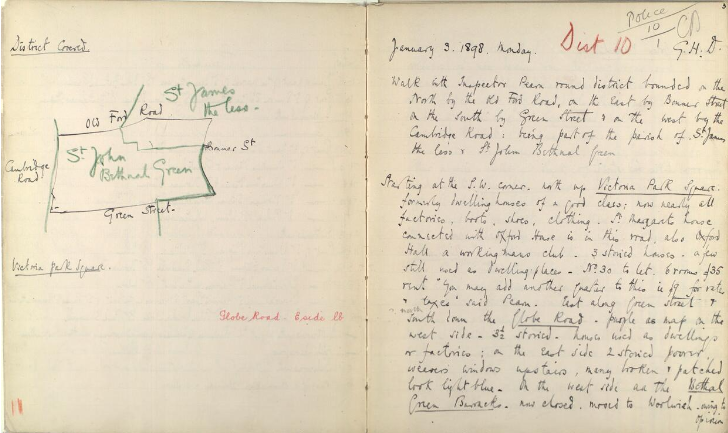 District Covered.
St James
the less.
Old Ford Road
Bonner St
Cambridge
Road
St John
Bethnal Green
Green Street.
Victoria Park Square.
Globe Road. E. side LB
11
3
Police
10
1
January 3. 1898. Monday.
Dist 10
G.H.D.
Walk with Inspector Pearn round district bounded on the
North by the Old Ford Road, on the East by Bonner Street
on the South by Green Street & on the west by the
Cambridge Road: being part of the parish of St James
the less & St John Bethnal Green
Starting at the S.W. corner. north up Victoria Park Square.
formerly dwelling houses of a good class; now nearly all
factories, boots, shoes, clothing. St Margaret house
connected with Oxford House is in this road, also Oxford
Hall a workingmans club. 3 storied houses. a few
still used as dwelling places. No. 30 to let. 6 rooms £35
rent "You may add another quarter to this ie £9 for rates
& taxes" said Pearn. East along Green Street &
north
South down the Globe Road. purple as map on the
west side. 3 storied. houses used as dwellings
or factories; on the East side 2 storied poorer.
weavers windows upstairs, many broken & patched
look light blue. On the west side are the Bethnal
Green Barracks. now closed. moved to Woolwich. owing to
opinion